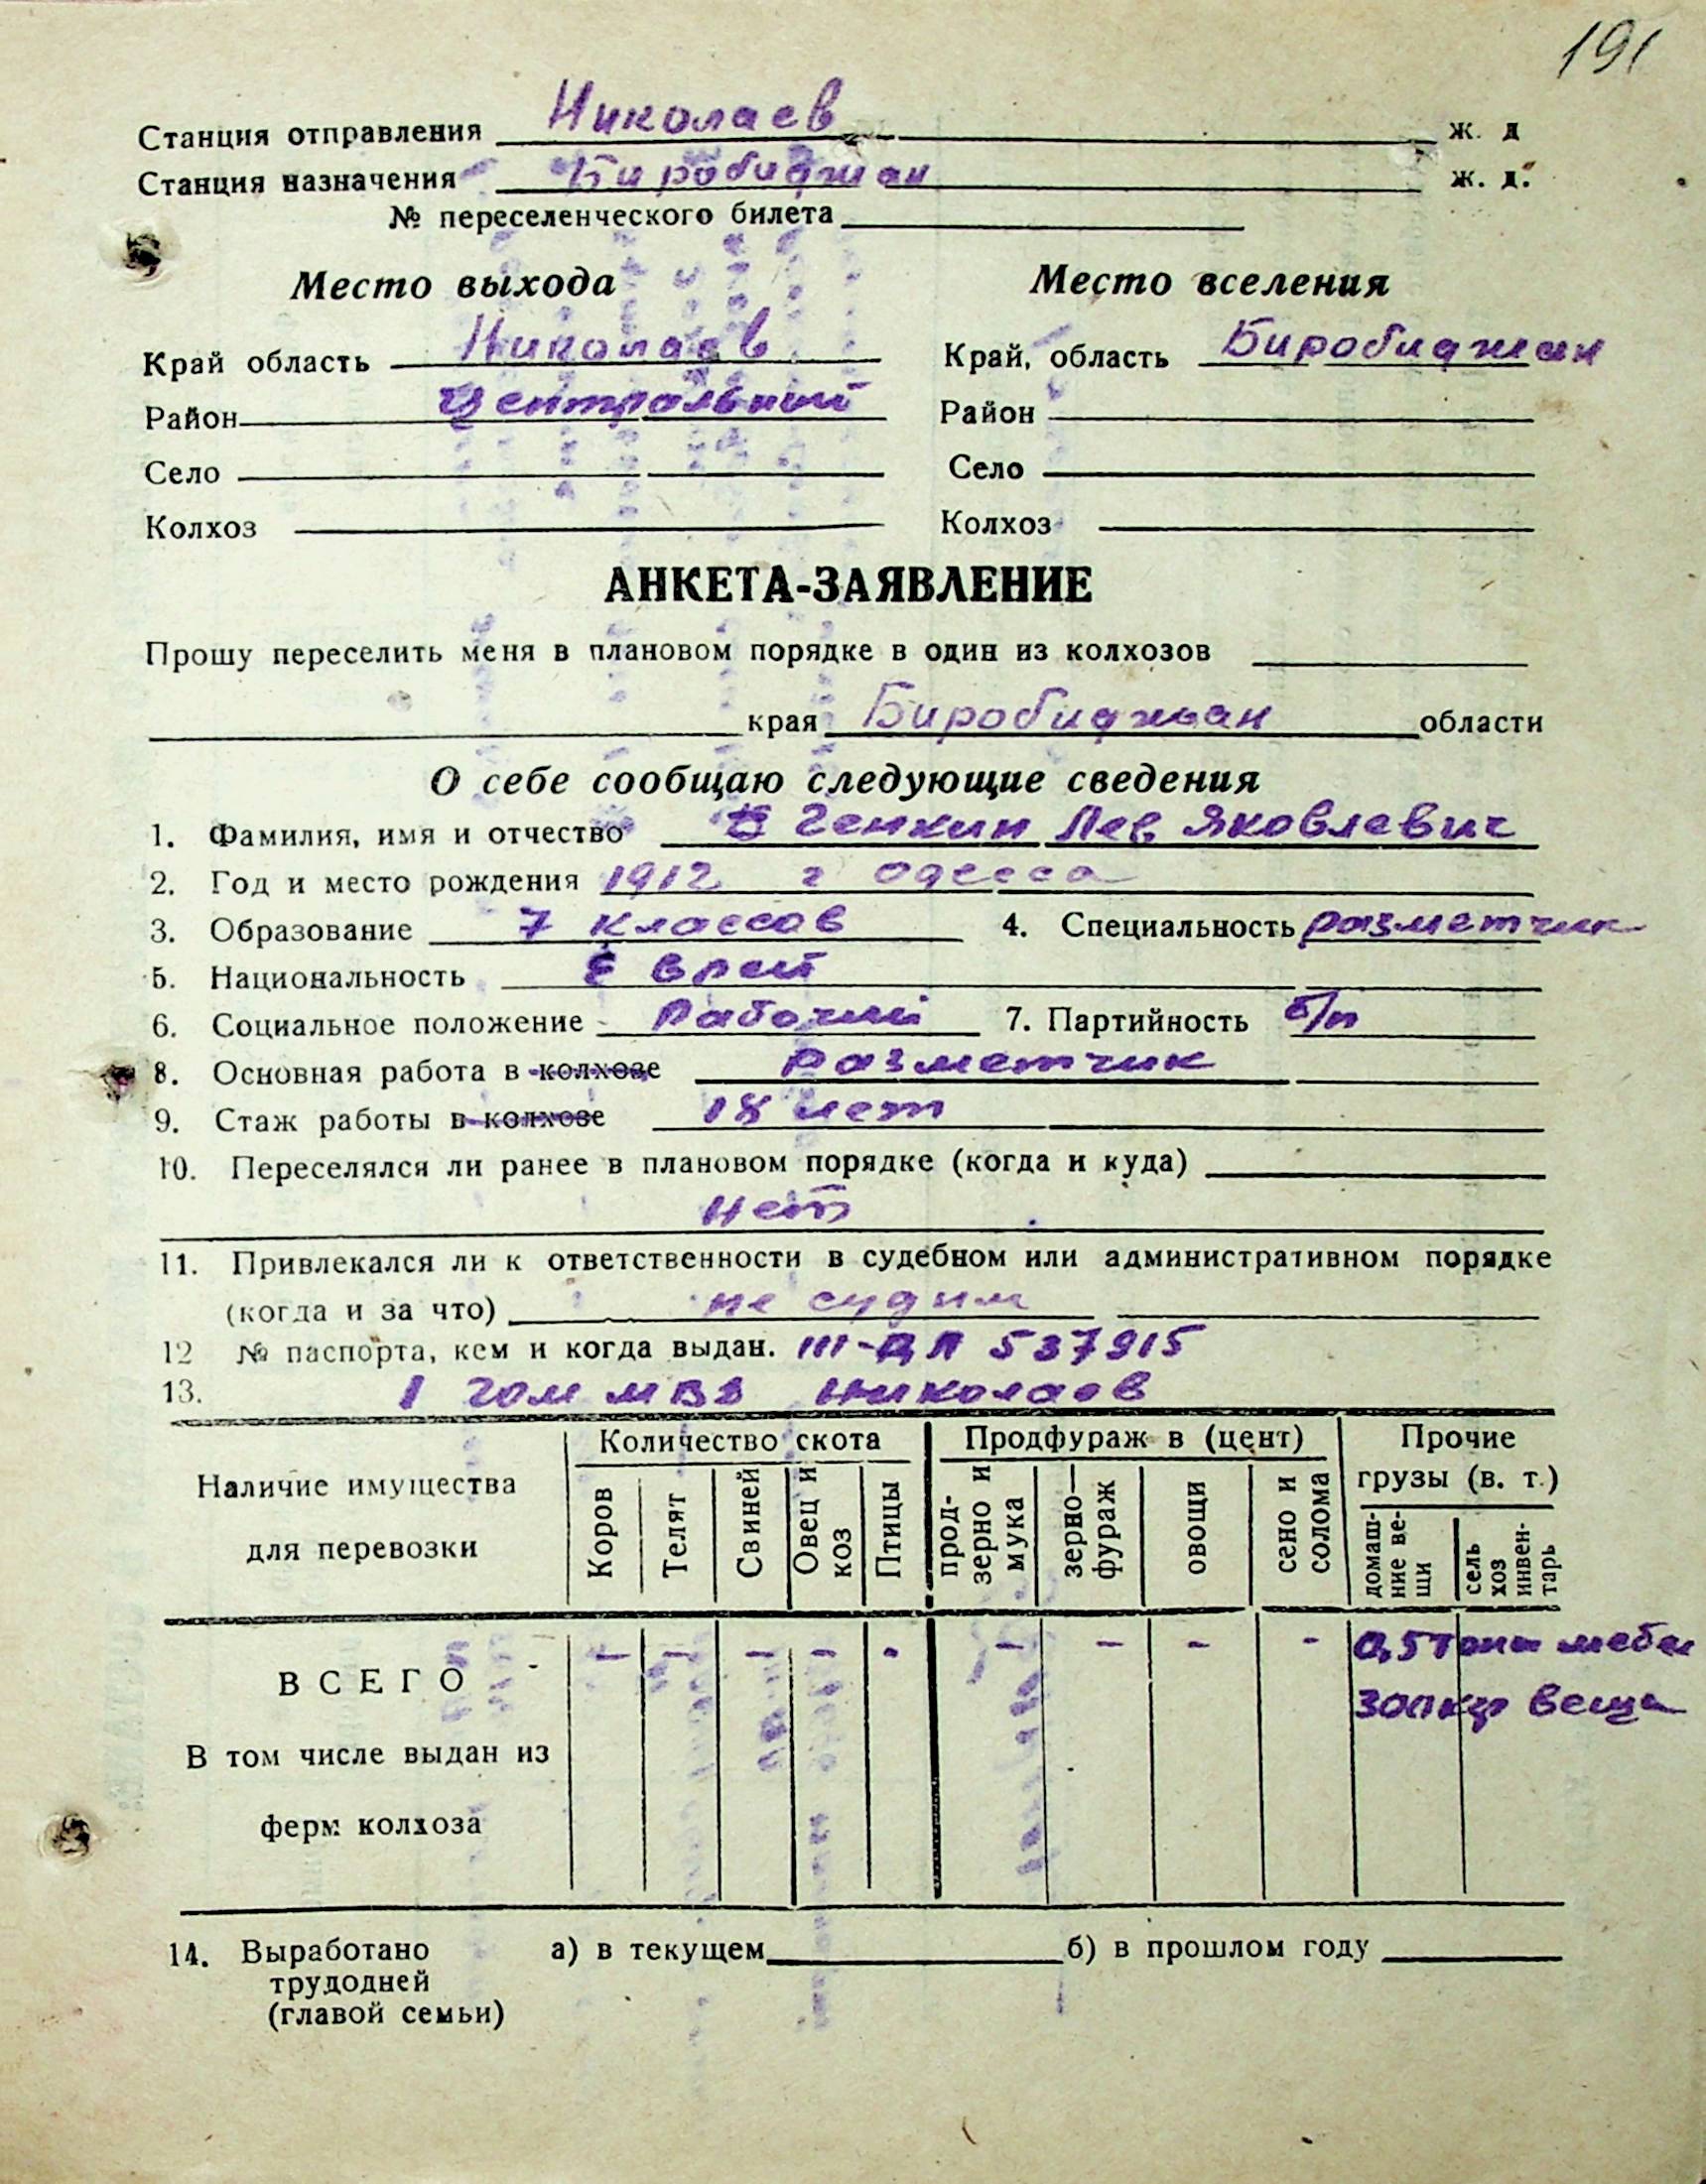 191
Станция отправления Николаев ж. д
Станция назначения Биробиджан ж. д.
№ переселенческого билета
Место выхода Место вселения
Край область Николаев Край, область Биробиджан
Район Центральный Район
Село Село
Колхоз Колхоз
АНКЕТА-ЗАЯВЛЕНИЕ
Прошу переселить меня в плановом порядке в один из колхозов
края Биробиджан области
О себе сообщаю следующие сведения
1. Фамилия, имя и отчество Генкин Лев Яковлевич
2. Год и место рождения 1912 г Одесса
3. Образование 7 классов 4. Специальность разметчик
5. Национальность Еврей
6. Социальное положение Рабочий 7. Партийность б/п
8. Основная работа в колхозе разметчик
9. Стаж работы в колхозе 18 лет
10. Переселялся ли ранее в плановом порядке (когда и куда)
Нет
11. Привлекался ли к ответственности в судебном или административном порядке
(когда и за что) не судим
12 № паспорта, кем и когда выдан. III-ДЛ 537915
13. 1 гом МВД Николаев
Наличие имущества для перевозки
Количество скота Продфураж в (цент) Прочие грузы (в. т.)
Коров Телят Свиней Овец и коз Птицы прод-зерно и мука зерно—фураж овощи сено и солома домаш-ние ве-щи сель хоз инвен-тарь
ВСЕГО - - - - - - - - - - 0,5 тонн мебе
300 кгр веща
В том числе выдан из
ферм колхоза
14. Выработано а) в текущем б) в прошлом году
трудодней
(главой семьи)